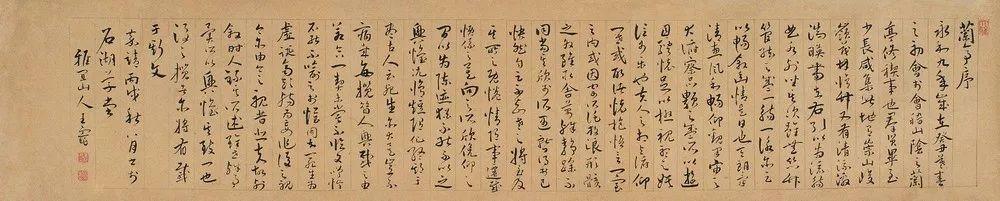 蘭亭序
永和九年歲在癸丑暮春
之初會於會稽山陰之蘭
亭脩禊事也羣賢畢至
少長咸集此地有崇山峻
嶺茂林脩竹又有清流激
湍暎帶左右引以為流觴
曲水列坐其次雖無絲竹
管絃之盛一觴一詠亦足
以暢敘幽情是日也天朗氣
清惠風和暢仰觀宇宙之
大俯察品類之盛所以遊
目騁懷足以極視聽之娛
信可樂也夫人之相與俯仰
一世或取諸懷抱悟言一室
之內或因寄所託放浪形骸
之外雖取舍萬殊靜躁不
同當其欣於所遇暫得於己
快然自足不知老之將至及
其所之既倦情隨事遷感
慨係之矣向之所欣俛仰之
間以為陳迹猶不能不以之
興懷況脩短隨化終期於
盡古人云死生亦大矣豈不
痛哉每攬昔人興感之由
若合一契未嘗不臨文嗟悼
不能不喻之於懷固知一死生為
虛誕齊彭殤為妄作後之視
今亦由今之視昔悲夫故列
敘時人錄其所述雖世殊事
異所以興懷其致一也
後之攬者亦將有感
於斯文
嘉靖丙戌秋八月書於
石湖草堂
雅宜山人王寵